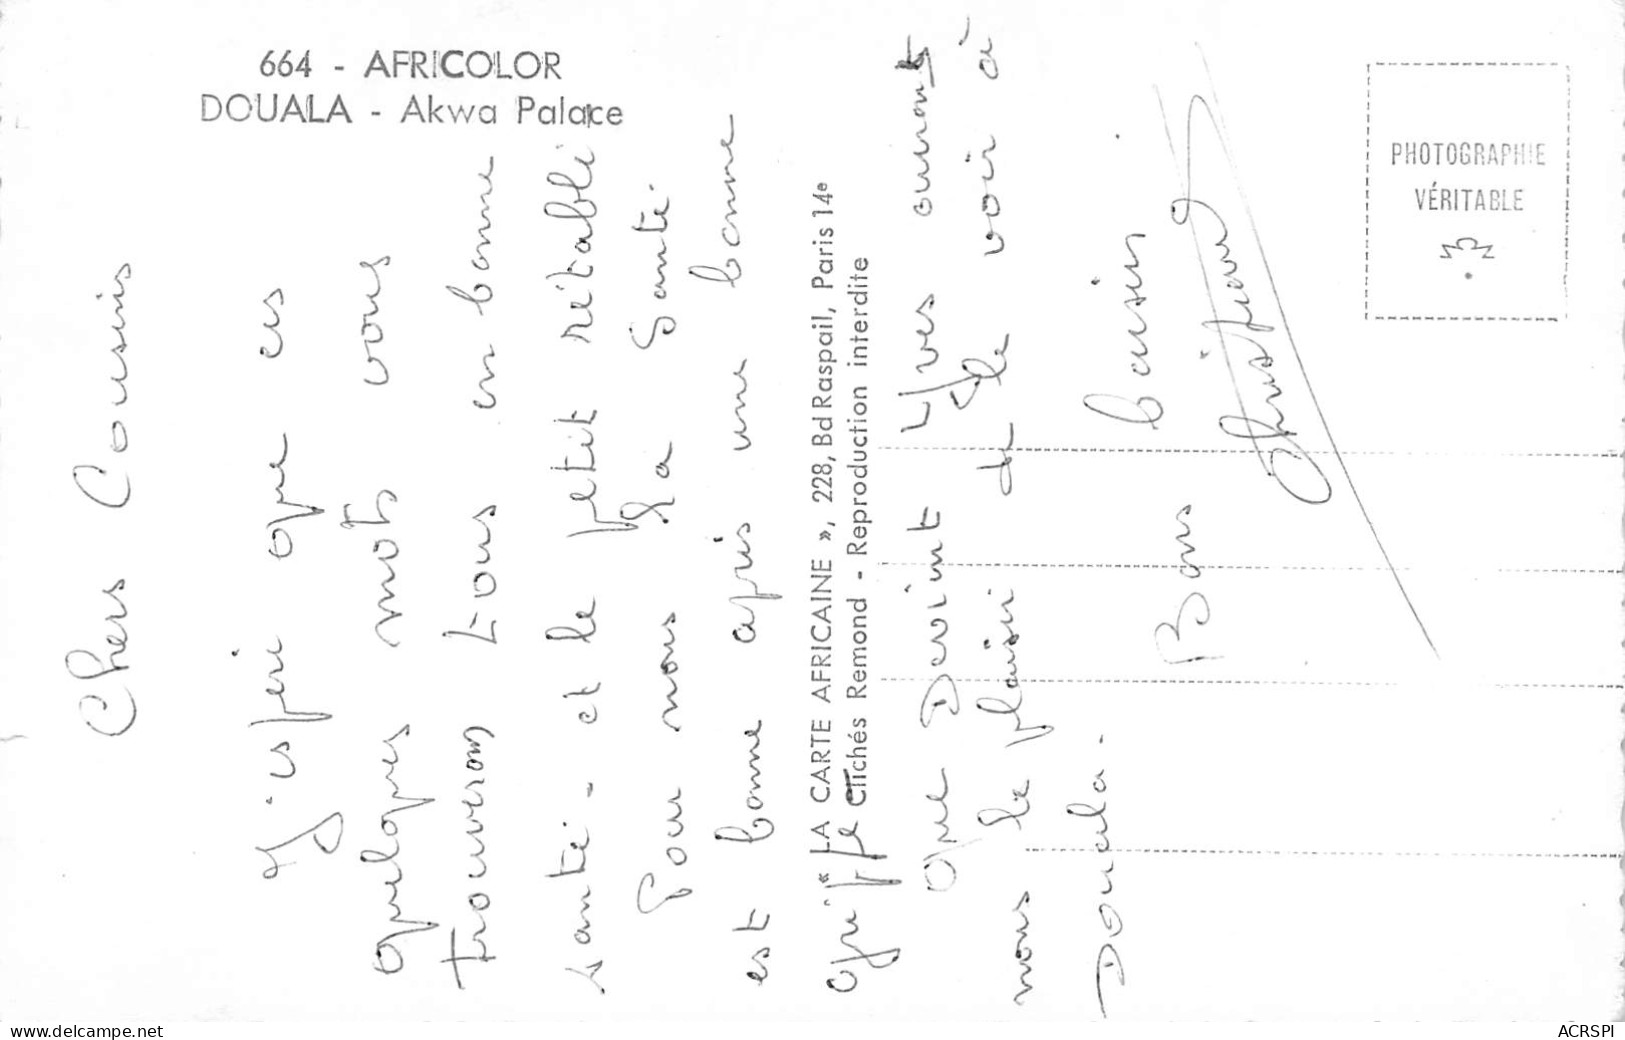 664 - AFRICOLOR
DOUALA - Akwa Palace
Chers Cousins
J'espère que ces
quelques mots vous
trouverons tous en bonne
santé - et le petit rétabli
Pour nous la santé
est bonne après une bonne
qui
que Devient Yves aurons
nous le plaisir de le voir à
Douala.
Bons baisers
"LA CARTE AFRICAINE », 228, Bd Raspail, Paris 14e
Clichés Remond - Reproduction interdite
PHOTOGRAPHIE
VÉRITABLE
www.delcampe.net
ACRSPI